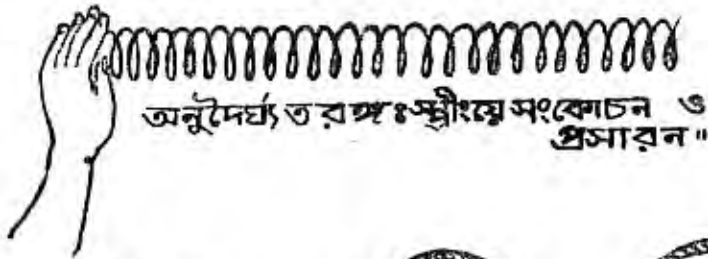 অনুদৈর্ঘ্য তরঙ্গঃ স্প্রীংয়ে সংকোচন ও
প্রসারন"